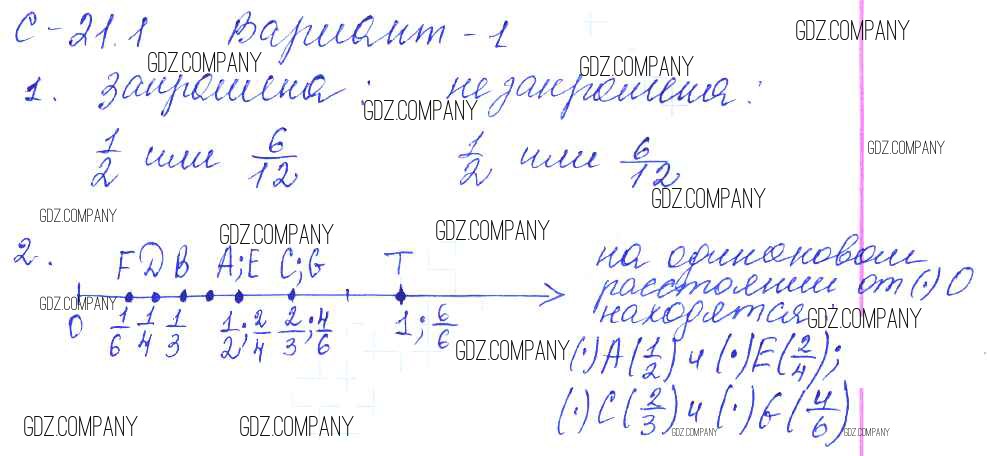 С-21.1 Вариант-1
GDZ.COMPANY
GDZ.COMPANY GDZ.COMPANY
1. Закрашена: не закрашена:
GDZ.COMPANY
1/2 или 6/12 1/2 или 6/12
GDZ.COMPANY
GDZ.COMPANY
GDZ.COMPANY
GDZ.COMPANY GDZ.COMPANY
2. F D B A;E C;G T
на одинаковом
расстоянии от (·) О
находятся
GDZ.COMPANY GDZ.COMPANY
0 1/6 1/4 1/3 1/2; 2/4 2/3; 4/6 1; 6/6
GDZ.COMPANY
(·) A(1/2) и (·) E(2/4);
(·) C(2/3) и (·) G(4/6)
GDZ.COMPANY GDZ.COMPANY GDZ.COMPANY GDZ.COMPANY